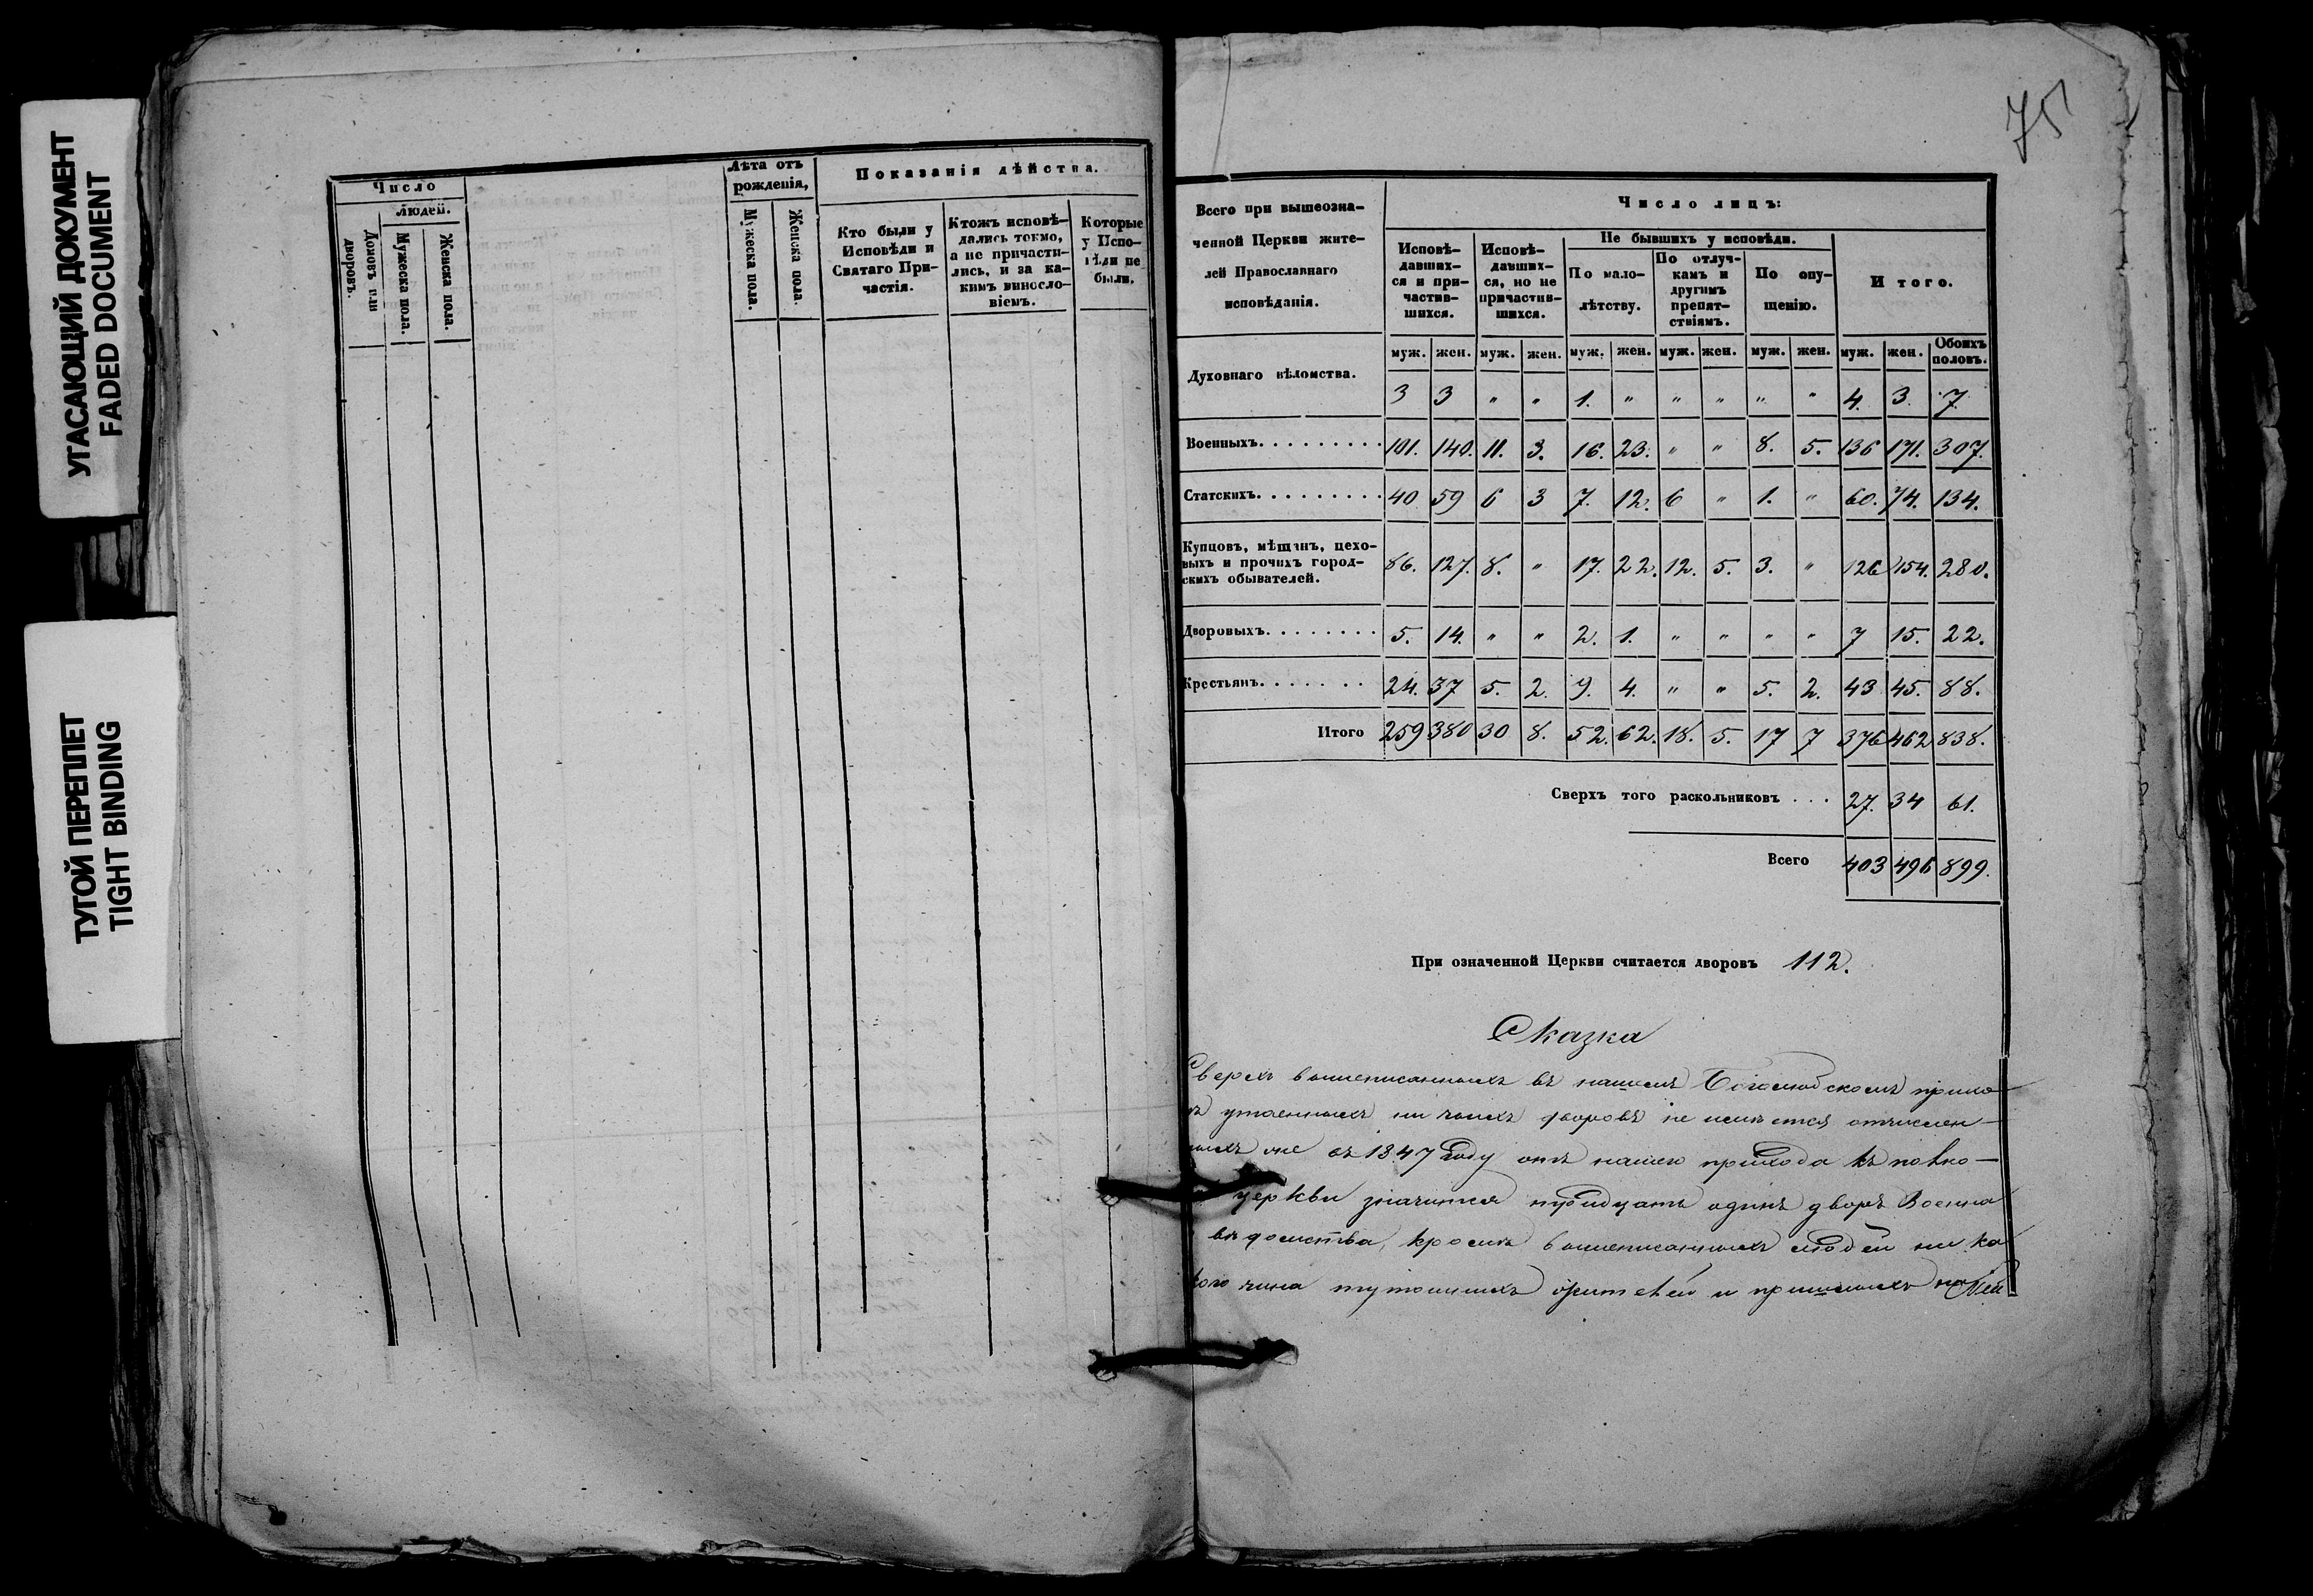 УГАСАЮЩИЙ ДОКУМЕНТ
FADED DOCUMENT
ТУГОЙ ПЕРЕПЛЕТ
TIGHT BINDING
Число
людей.
Домовъ или дворовъ.
Мужеска пола.
Женска пола.
Лѣта отъ
рожденія,
Мужеска пола.
Женска пола.
Показанія дѣйства.
Кто были у
Исповѣди и
Святаго При-
частія.
Ктожъ исповѣ-
дались токмо,
а не причасти-
лись, и за ка-
кимъ виносло-
віемъ.
Которые
у Испо-
вѣди не
были.
75
Всего при вышеозна-
ченной Церкви жите-
лей Православнаго
исповѣданія.
Число лицъ:
Исповѣ-
давших-
ся и при-
частив-
шихся.
Исповѣ-
давших-
ся, но не
причастив-
шихся.
Не бывшихъ у исповѣди.
По мало-
лѣтству.
По отлуч-
камъ и
другимъ
препят-
ствіямъ.
По опу-
щенію.
Итого.
муж. жен. муж. жен. муж. жен. муж. жен. муж. жен. муж. жен. Обоихъ половъ.
Духовнаго вѣдомства. 3 3 " " 1. " " " " " 4. 3. 7.
Военныхъ. . . . . . . . . 101. 140. 11. 3. 16. 23. " " 8. 5. 136 171. 307.
Статскихъ. . . . . . . . . 40 59 6 3 7. 12. 6 " 1. " 60. 74. 134.
Купцовъ, мѣщанъ, цехо-
выхъ и прочихъ город-
скихъ обывателей. 86. 127. 8. " 17. 22. 12. 5. 3. " 126 154. 280.
Дворовыхъ. . . . . . . . 5. 14. " " 2. 1. " " " " 7 15. 22.
Крестьянъ. . . . . . . 24. 37 5. 2. 9. 4. " " 5. 2. 43 45. 88.
Итого 259 380 30 8. 52. 62. 18. 5. 17 7 376 462 838.
Сверхъ того раскольниковъ . . . 27. 34 61.
Всего 403 496 899.
При означенной Церкви считается дворовъ 112.
Сказка
Сверхъ вышеписанныхъ въ нашемъ прихо-
утаенныхъ ни чьихъ дворовъ не имѣется отчислен-
ныхъ же въ 1847 году отъ нашего прихода къ
церкви значится тридцать одинъ дворъ Военна
вѣдомства, кромѣ вышеписанныхъ людей ни ка
кого чина тутошнихъ жителей и пришлыхъ